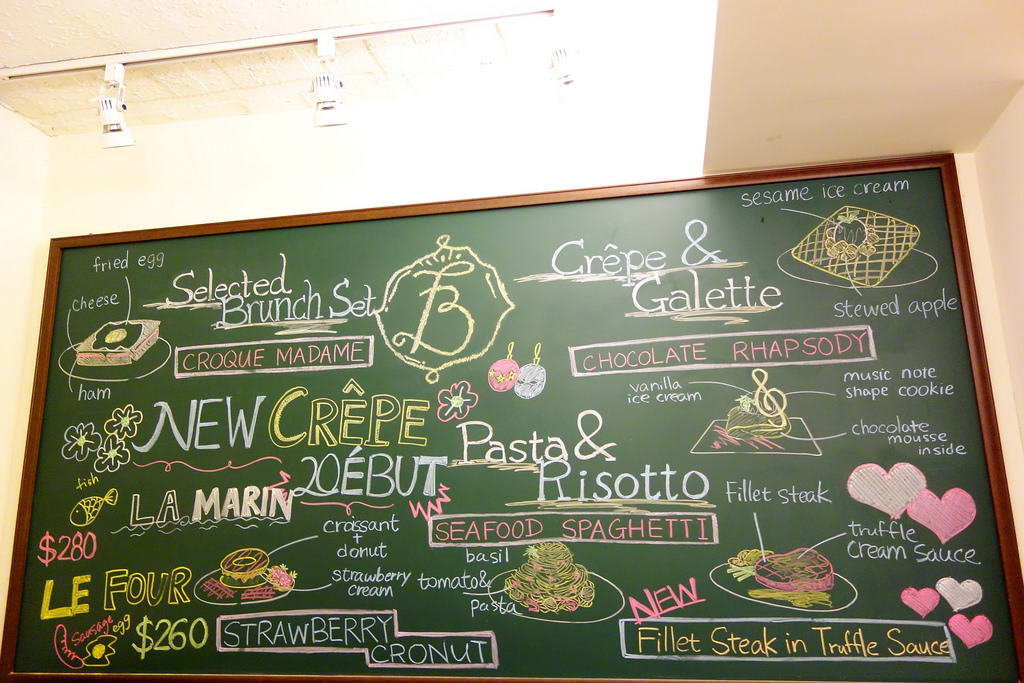 fried egg
cheese
ham
Selected
Brunch Set
CROQUE MADAME
B
Crêpe &
Galette
sesame ice cream
stewed apple
CHOCOLATE RHAPSODY
vanilla
ice cream
music note
shape cookie
chocolate
mousse
inside
NEW CRÊPE
DÉBUT
fish
LA MARIN
$280
LE FOUR
sausage
egg
$260
croissant
+
donut
strawberry
cream
STRAWBERRY
CRONUT
Pasta &
Risotto
SEAFOOD SPAGHETTI
basil
tomato &
pasta
Fillet steak
truffle
cream sauce
NEW
Fillet Steak in Truffle Sauce